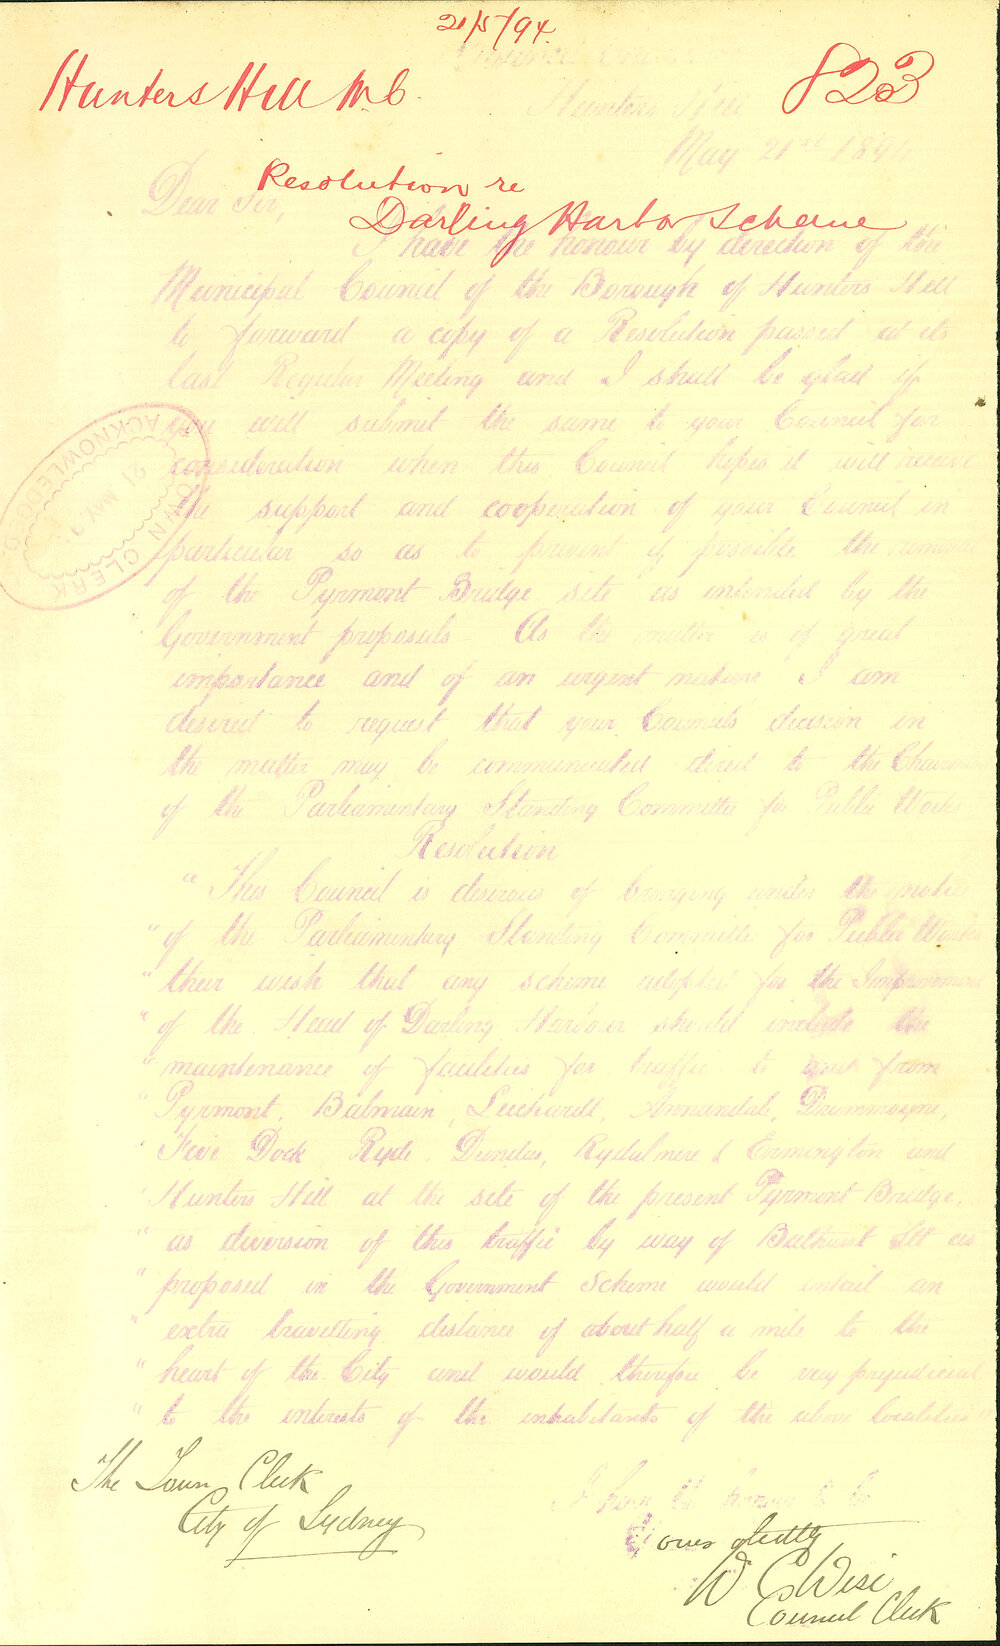 21/5/94.
Hunters Hill M.C.
823
Council Chambers
Hunters Hill
May 21st 1894
Resolution re
Darling Harbor Scheme
Dear Sir,
I have the honour by direction of the
Municipal Council of the Borough of Hunters Hill
to forward a copy of a Resolution passed at its
last Regular Meeting and I shall be glad if
you will submit the same to your Council for
consideration when this Council hopes it will receive
the support and cooperation of your Council in
particular so as to prevent if possible the removal
of the Pyrmont Bridge site as intended by the
Government proposals - As the matter is of great
importance and of an urgent nature I am
desired to request that your Councils decision in
the matter may be communicated direct to the Chairman
of the Parliamentary Standing Committee for Public Works
Resolution
"This Council is desirous of bringing under the notice
"of the Parliamentary Standing Committee for Public Works
"their wish that any scheme adopted for the Improvement
"of the Head of Darling Harbour should include the
"maintenance of facilities for traffic to and from
"Pyrmont, Balmain, Leichardt, Annandale, Drummoyne,
"Five Dock, Ryde, Dundas, Rydalmere & Ermington and
"Hunters Hill at the site of the present Pyrmont Bridge,
"as diversion of this traffic by way of Bathurst Stt as
"proposed in the Government Scheme would entail an
"extra travelling distance of about half a mile to the
"heart of the City and would therefore be very prejudicial
"to the interests of the inhabitants of the above localities"
I have the honour to be
Yours obdtly
W C Wise
Council Clerk
The Town Clerk
City of Sydney
TOWN CLERK
ACKNOWLEDGED
21 MAY